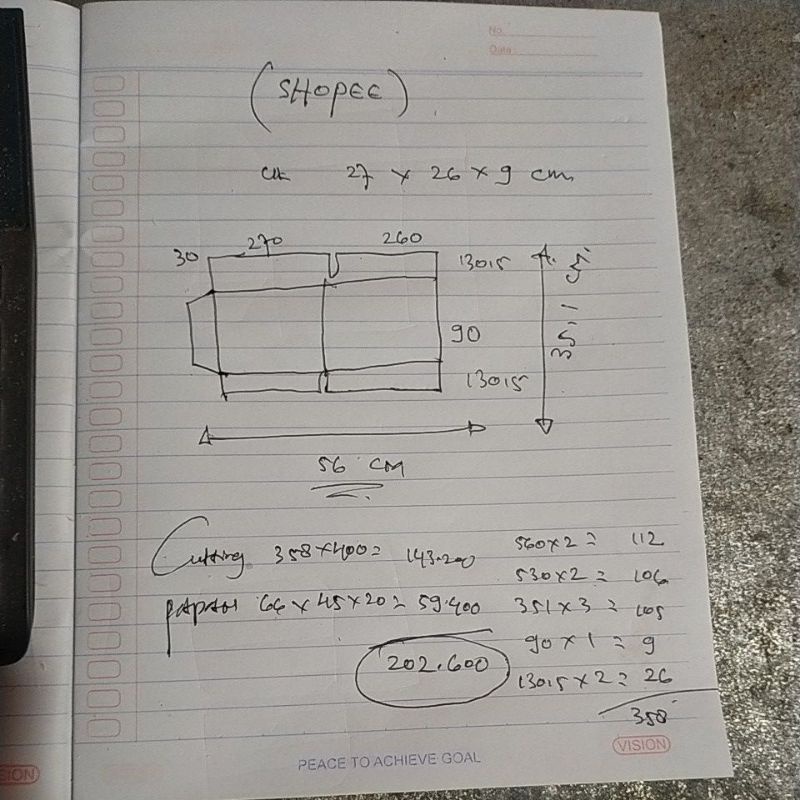 No
Date:
(SHOPEE)
Uk 27 x 26 x 9 cm
270 260
30
130,5
90
130,5
35,1 cm
56 CM
Cutting 358 x 400 = 143.200
66 x 45 x 20 = 59.400
202.600
560 x 2 = 112
530 x 2 = 106
351 x 3 = 105
90 x 1 = 9
130,5 x 2 = 26
358
VISION
PEACE TO ACHIEVE GOAL
SION